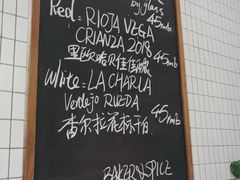 by glass
Red = RIOJA VEGA 45rmb
CRIANZA 2018
里奥哈佳酿 45rmb
White = LA CHARLA
Verdejo RUEDA 45rmb
查尔拉 干白
BAKER&SPICE